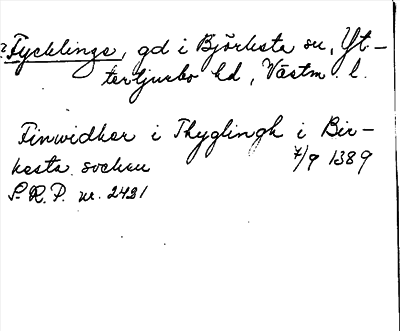 ? Tycklinge, gd i Björksta sn, Yt-
terljusbo hd, Västm. l.
Finwidher i Thyglingh i Bir-
kesta sochen 7/9 1389
S. R. P. nr. 2421